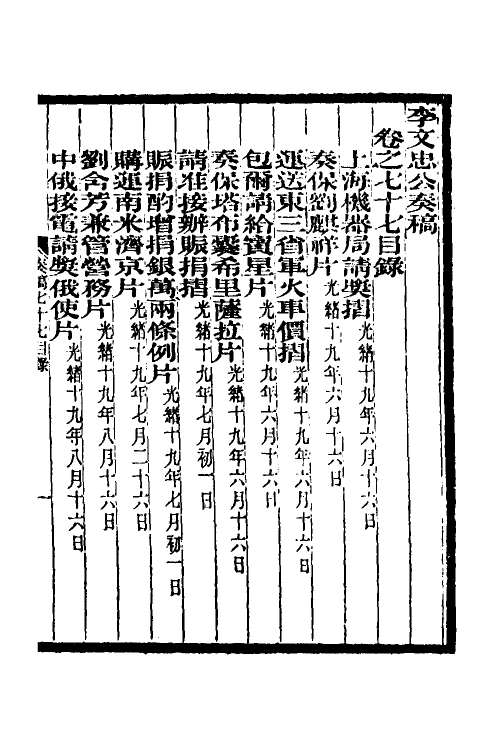 李文忠公奏稿
卷之七十七目錄
上海機器局請獎摺 光緒十九年六月十六日
奏保劉麒祥片 光緒十九年六月十六日
運送東三省軍火車價摺 光緒十九年六月十六日
包爾請給寶星片 光緒十九年六月十六日
奏保塔布囊希里薩拉片 光緒十九年六月十六日
請准接辦賑捐摺 光緒十九年七月初一日
賑捐酌增捐銀萬兩條例片 光緒十九年七月初一日
購運南米濟京片 光緒十九年七月二十六日
劉含芳兼管營務片 光緒十九年八月十六日
中俄接電請獎俄使片 光緒十九年八月十六日
奏稿七十七目錄 一